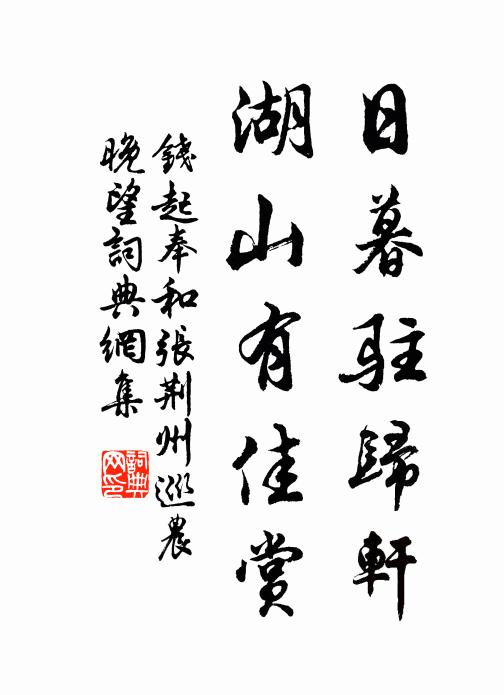 日暮駐歸軒
湖山有佳賞
錢起奉和張荆州巡農
晚望詞典網集
詞典
网印